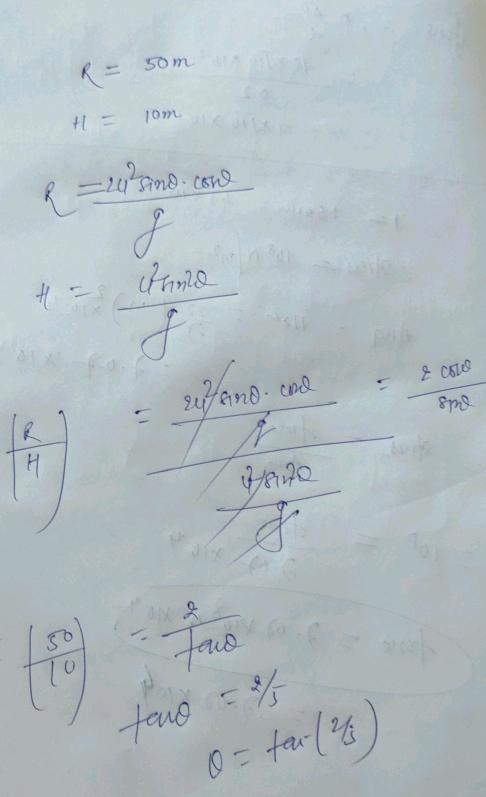 R = 50m
H = 10m
R = 2u² sinθ · cosθ / g
H = u² sin²θ / g
(R/H) = (2u² sinθ · cosθ / g) / (u² sin²θ / g) = 2 cosθ / sinθ
(50/10) = 2 / tanθ
tanθ = 2/5
θ = tan⁻(2/5)